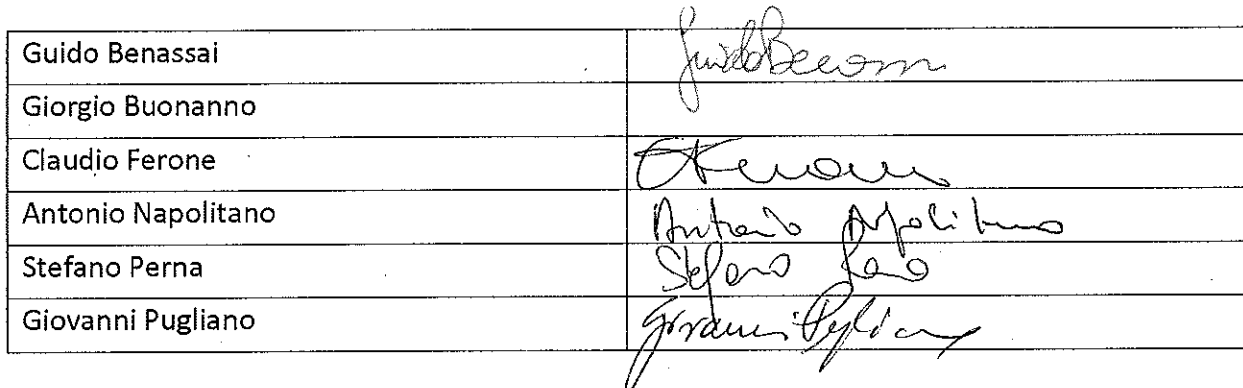 Guido Benassai Guido Benassai
Giorgio Buonanno
Claudio Ferone
Antonio Napolitano Antonio Napolitano
Stefano Perna Stefano Perna
Giovanni Pugliano Giovanni Pugliano